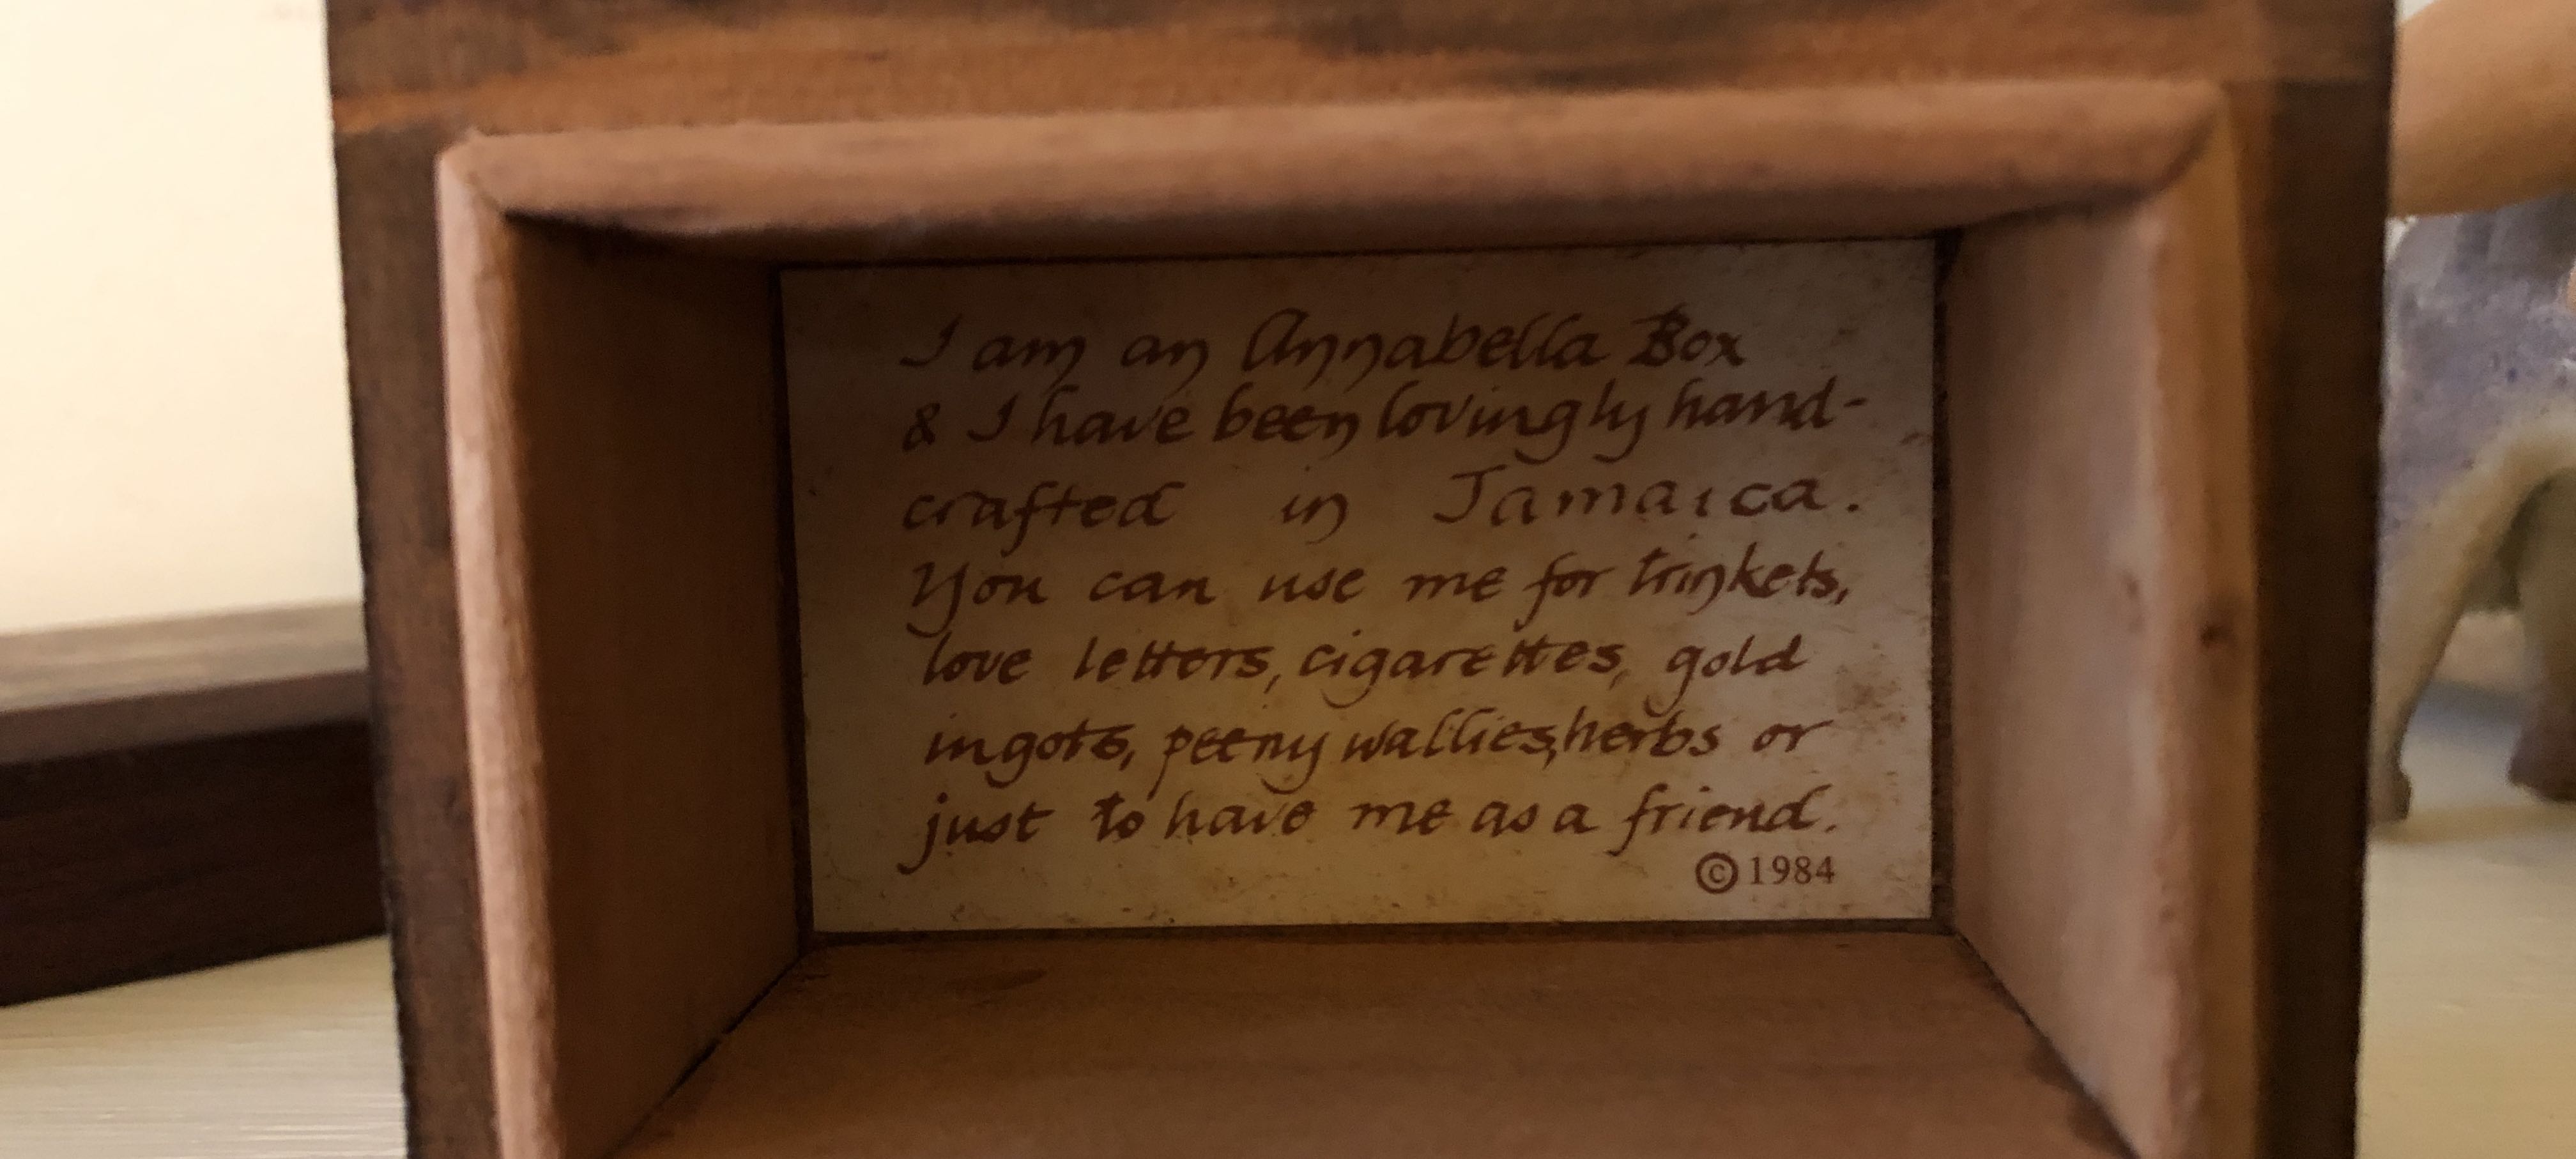 I am an Annabella Box
& I have been lovingly hand-
crafted in Jamaica.
You can use me for trinkets,
love letters, cigarettes, gold
ingots, peeny wallies, herbs or
just to have me as a friend.
© 1984